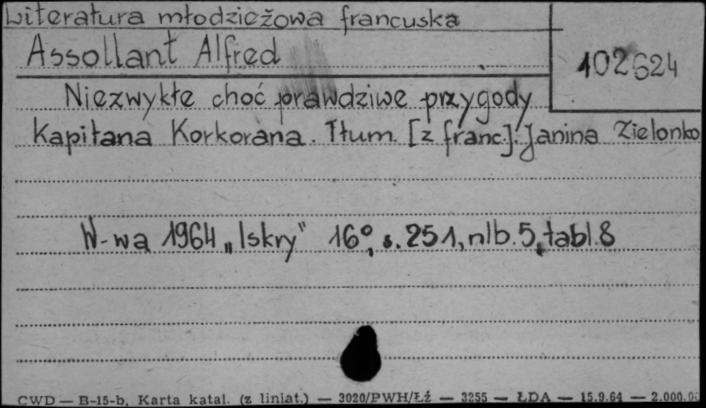 Literatura młodzieżowa francuska
Assollant Alfred
102624
Niezwykłe choć prawdziwe przygody
Kapitana Korkorana. Tłum. [z franc.]: Janina Zielonko
W-wa 1964 „Iskry" 16°, s. 251, nlb. 5, tabl. 8
CWD — B-15-b, Karta katal. (z liniat.) — 3020/PWH/Łź — 3255 — ŁDA — 15.9.64 — 2.000.00